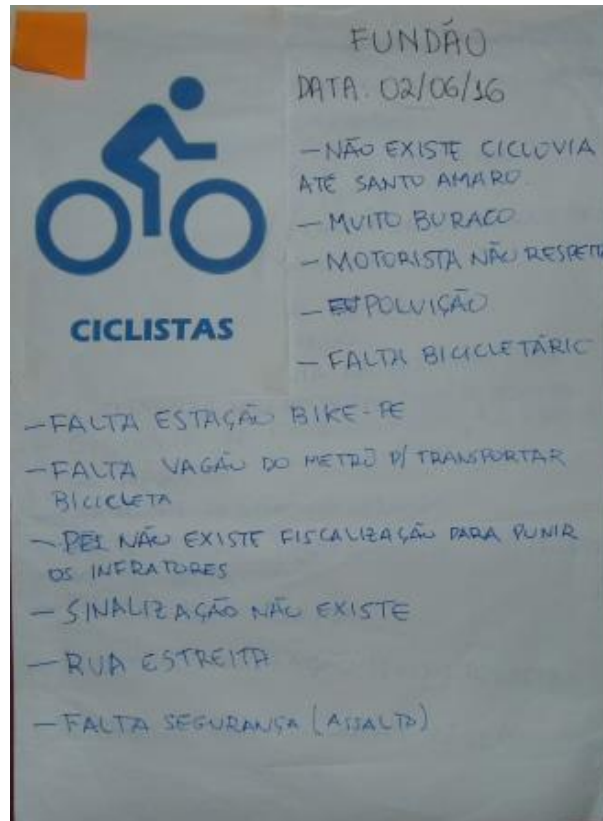 FUNDÃO
DATA: 02/06/16
— NÃO EXISTE CICLOVIA
ATÉ SANTO AMARO
— MUITO BURACO
— MOTORISTA NÃO RESPEITA
— POLUIÇÃO
— FALTA BICICLETÁRIO
CICLISTAS
— FALTA ESTAÇÃO BIKE-PE
— FALTA VAGÃO DO METRÔ P/ TRANSPORTAR
BICICLETA
— NÃO EXISTE FISCALIZAÇÃO PARA PUNIR
OS INFRATORES
— SINALIZAÇÃO NÃO EXISTE
— RUA ESTREITA
— FALTA SEGURANÇA (ASSALTO)